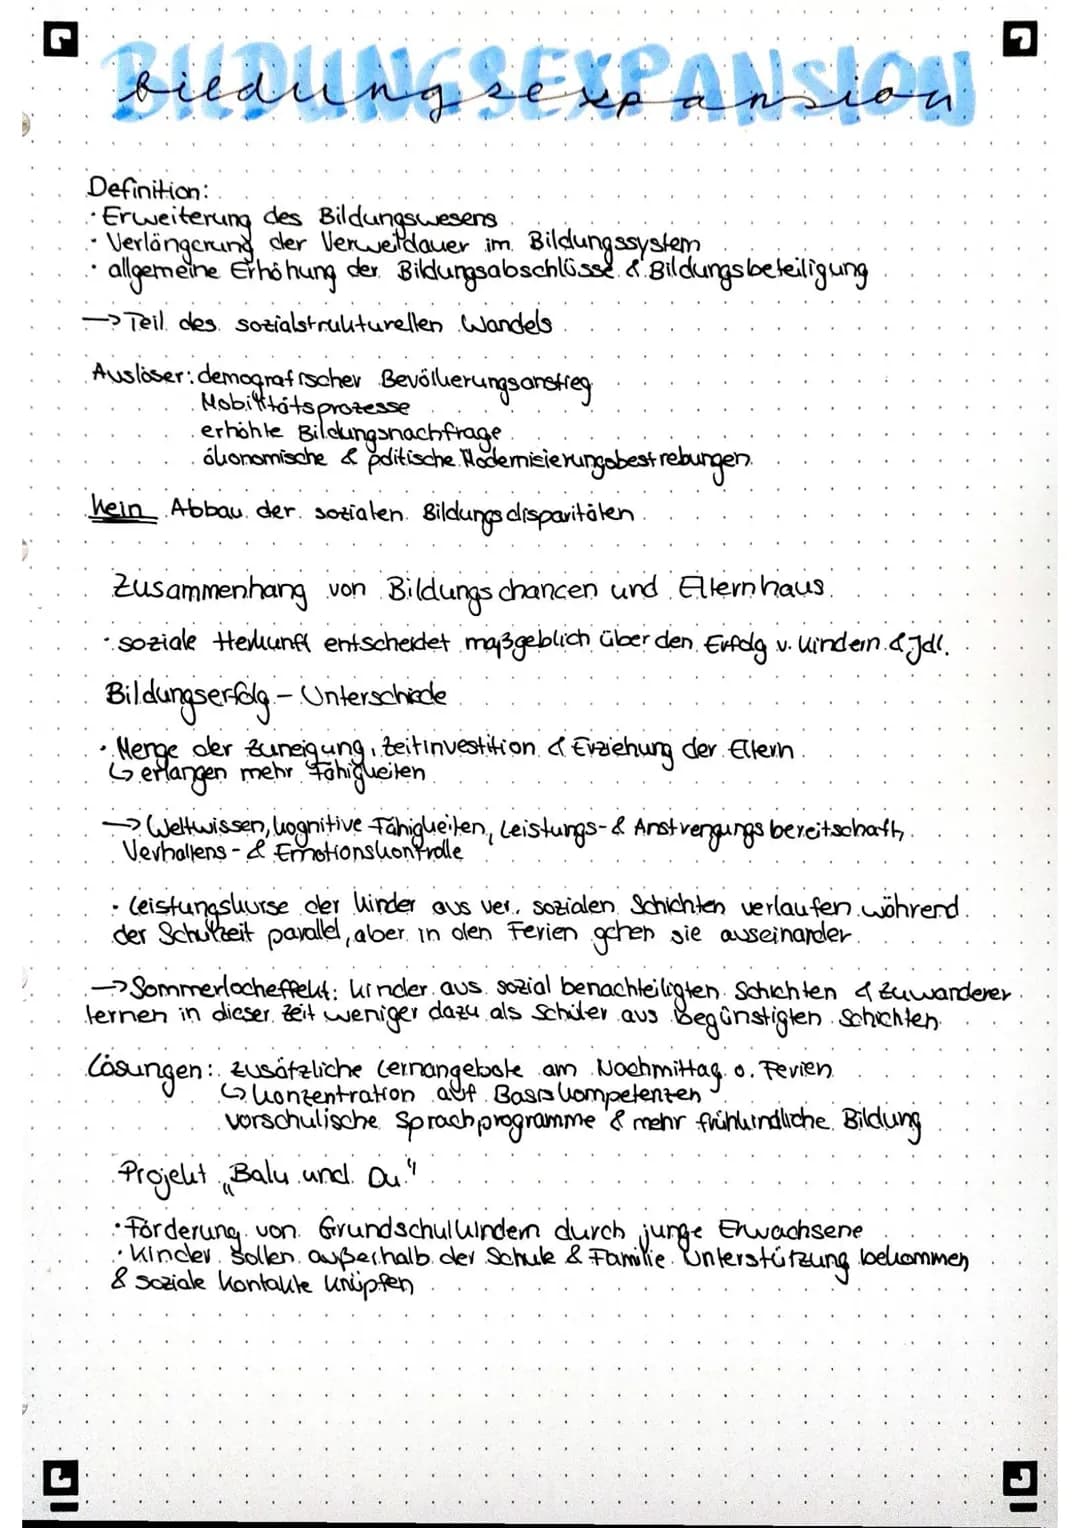 BILDUNGSEXPANSION
Bildungsexpansion
Definition:
· Erweiterung des Bildungswesens
· Verlängerung der Verweildauer im Bildungssystem
· allgemeine Erhöhung der Bildungsabschlüsse & Bildungsbeteiligung
→ Teil des sozialstrukturellen Wandels
Auslöser: demografischer Bevölkerungsanstieg
Mobilitätsprozesse
erhöhte Bildungsnachfrage
ökonomische & politische Modernisierungsbestrebungen
kein Abbau der sozialen Bildungsdisparitäten
Zusammenhang von Bildungschancen und Elternhaus
· soziale Herkunft entscheidet maßgeblich über den Erfolg v. Kindern & Jdl.
Bildungserfolg - Unterschiede
· Menge der Zuneigung, Zeitinvestition & Erziehung der Eltern
↳ erlangen mehr Fähigkeiten
→ Weltwissen, kognitive Fähigkeiten, Leistungs- & Anstrengungsbereitschaft,
Verhaltens- & Emotionskontrolle
· Leistungskurse der Kinder aus ver. sozialen Schichten verlaufen während
der Schulzeit parallel, aber in den Ferien gehen sie auseinander
→ Sommerlocheffekt: Kinder aus sozial benachteiligten Schichten & Zuwanderer
lernen in dieser Zeit weniger dazu als Schüler aus begünstigten Schichten
Lösungen: zusätzliche Lernangebote am Nachmittag o. Ferien
↳ Konzentration auf Basiskompetenzen
vorschulische Sprachprogramme & mehr frühkindliche Bildung
Projekt „Balu und Du"
· Förderung von Grundschulkindern durch junge Erwachsene
· Kinder sollen außerhalb der Schule & Familie Unterstützung bekommen
& soziale Kontakte knüpfen